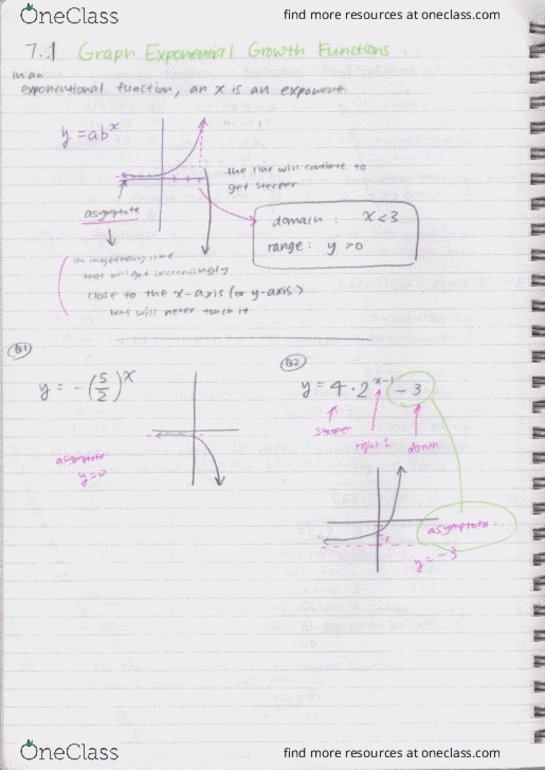 OneClass
find more resources at oneclass.com
7.1 Graph Exponential Growth Functions
in an
exponentional function, an x is an exponent
y = ab^x
the line will continue to
get steeper
asymptote
domain : x < 3
range : y > 0
an imaginary line
that will get increasingly
close to the x-axis (or y-axis)
but will never touch it
Q1
y = -(5/2)^x
asymptote
y = 0
Q2
y = 4 · 2^(x-1) - 3
steeper
right 1
down
asymptote
y = -3
OneClass
find more resources at oneclass.com